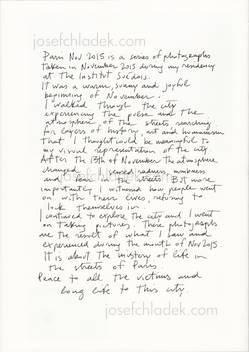 josefchladek.com
Paris Nov 2015 is a series of photographs
taken in November 2015 during my residency
at the Institut Suédois.
It was a warm, sunny and joyful
beginning of November.
I walked through the city
experiencing the pulse and the
atmosphere of the streets searching
for layers of history, art and humanism
that I thought could be meaningful to
my visual representation of the city
After the 13th of November the atmosphere
changed sadness, numbness
and fear in the streets. But more
importantly I witnessed how people went
on with their lives, refusing to
lock themselves in
I continued to explore the city and I went
on taking pictures. These photographs
are the result of what I saw and
experienced during the month of Nov 2015.
It is about the mystery of life in
the streets of Paris
Peace to all the victims and
long life to this city.
josefchladek.com